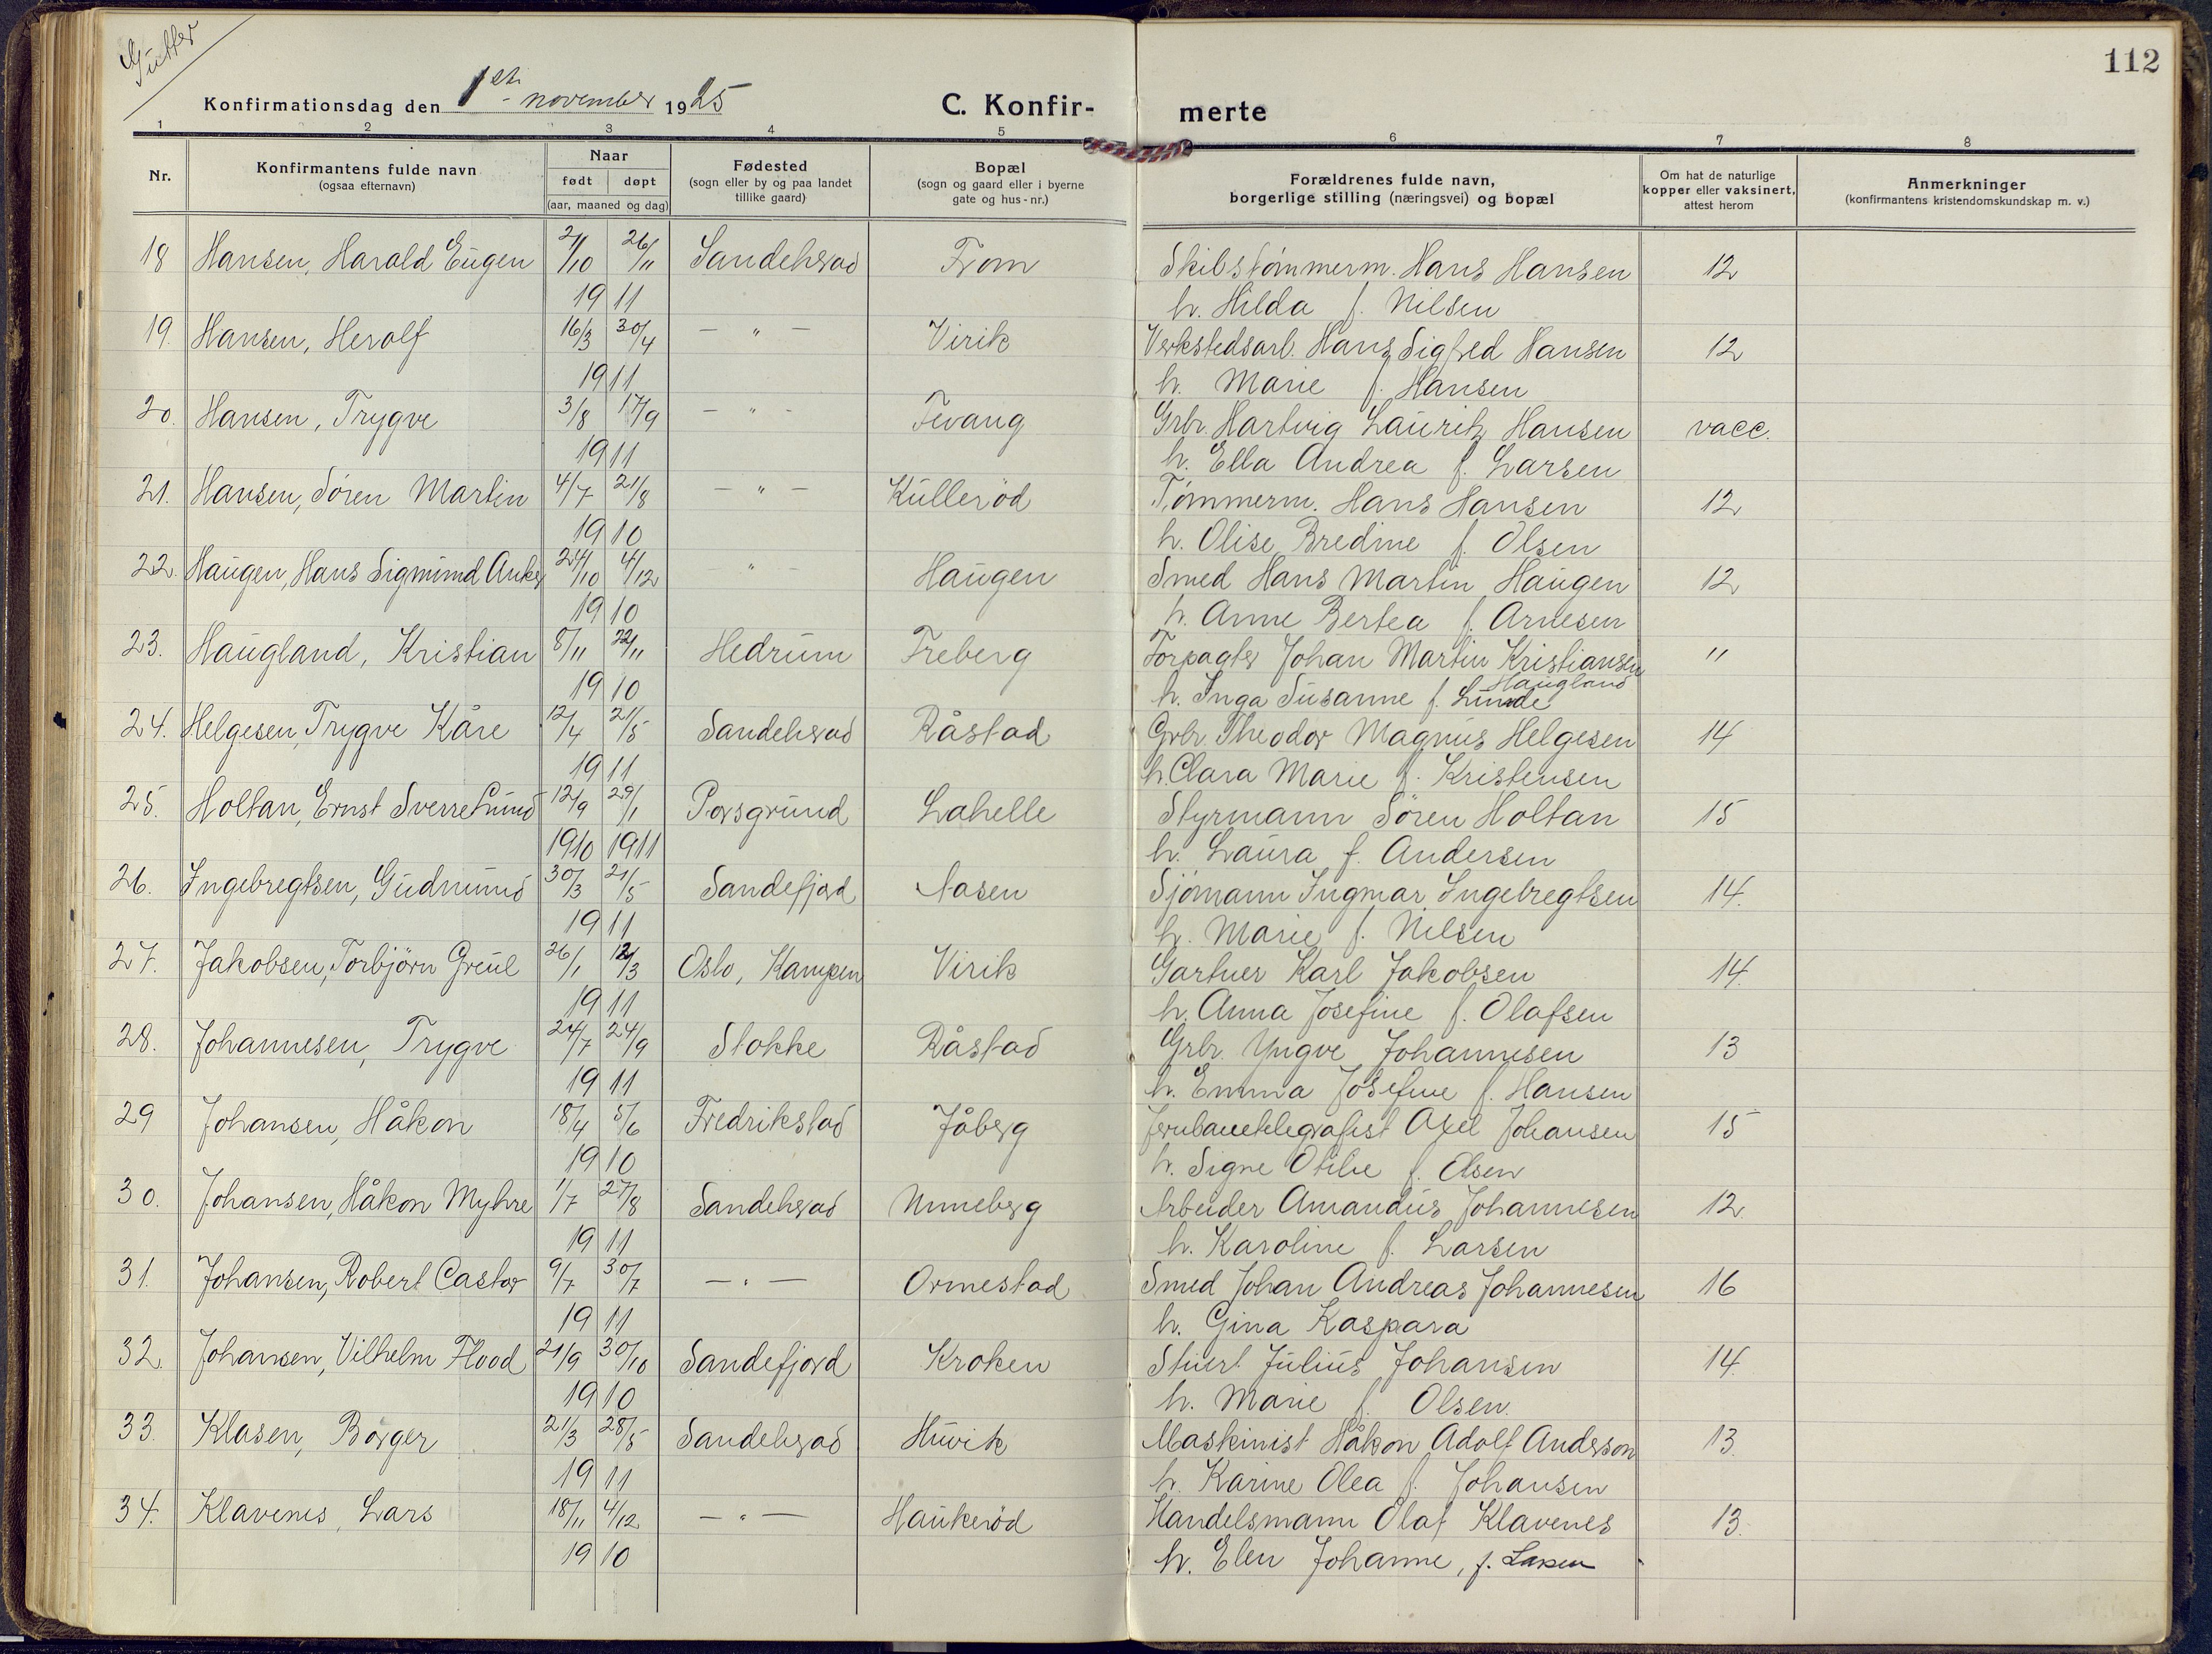 Gutter
112
Konfirmationsdag den 1st november 1925
C. Konfir-
merte
1 2 3 4 5 6 7 8
Nr.
Konfirmantens fulde navn
(ogsaa efternavn)
Naar
født døpt
(aar, maaned og dag)
Fødested
(sogn eller by og paa landet
tillike gaard)
Bopæl
(sogn og gaard eller i byerne
gate og hus-nr.)
Forældrenes fulde navn,
borgerlige stilling (næringsvei) og bopæl
Om hat de naturlige
kopper eller vaksinert,
attest herom
Anmerkninger
(konfirmantens kristendomskundskap m. v.)
18 Hansen, Harald Eugen 2/10 26/11 Sandeherad From Skibstømmerm. Hans Hansen 12
1911 h. Hilda f. Nilsen
19. Hansen, Herolf 16/3 30/4 — " — Virik Verkstedsarb. Hans Sigfred Hansen 12
1911 h. Marie f. Hansen
20. Hansen, Trygve 3/8 17/9 — " — Tevang Grbr. Hartvig Lauritz Hansen vacc.
1911 h. Ella Andrea f. Larsen
21. Hansen, Søren Martin 4/7 21/8 — " — Kullerød Tømmerm. Hans Hansen 12
1910 h. Olise Bredine f. Olsen
22. Haugen, Hans Sigmund Anker 24/10 4/12 — " — Haugen Smed Hans Martin Haugen 12
1910 h. Anne Bertea f. Arnesen
23. Haugland, Kristian 8/11 22/11 Hedrum Freberg Forpagter Johan Martin Kristiansen "
Haugland
1910 h. Inga Susanne f. Lunde
24. Helgesen, Trygve Kåre 12/4 21/5 Sandeherad Råstad Grbr. Theodor Magnus Helgesen 14
1911 h. Clara Marie f. Kristensen
25. Holtan, Ernst Sverre Lund 12/9 29/1 Porsgrund Lahelle Styrmann Søren Holtan 15
1910 1911 h. Laura f. Andersen
26. Ingebregtsen, Gudmund 30/3 21/5 Sandefjord Aasen Sjømann Ingmar Ingebregtsen 14.
1911 h. Marie f. Nilsen
27. Jakobsen, Torbjørn Greul 26/1 12/3 Oslo, Kampen Virik Gartner Karl Jakobsen 14.
1911 h. Anna Josefine f. Olafsen
28. Johannesen, Trygve 24/7 24/9 Stokke Råstad Grbr. Yngve Johannesen 13
1911 h. Emma Josefine f. Hansen
29 Johansen, Håkon 18/4 5/6 Fredrikstad Jåberg Jernbanetelegrafist Axel Johansen 15
1910 h. Signe Otilie f. Olsen
30. Johansen, Håkon Myhre 1/7 27/8 Sandeherad Unneberg Arbeider Amandus Johannesen 12.
1911 h. Karoline f. Larsen
31. Johansen, Robert Castor 9/7 30/7 — " — Ormestad Smed Johan Andreas Johannesen 16
1911 h. Gina Kaspara
32. Johansen, Vilhelm Flood 21/9 30/10 Sandefjord Kroken Stuert Julius Johansen 14.
1910 h. Marie f. Olsen.
33. Klasen, Børger 21/3 28/5 Sandeherad Huvik Maskinist Håkon Adolf Anderson 13.
1911 h. Karine Olea f. Johansen
34. Klavenes, Lars 18/11 4/12 — " — Haukerød Handelsmann Olaf Klavenes 13.
1910 h. Elen Johanne, f. Larsen